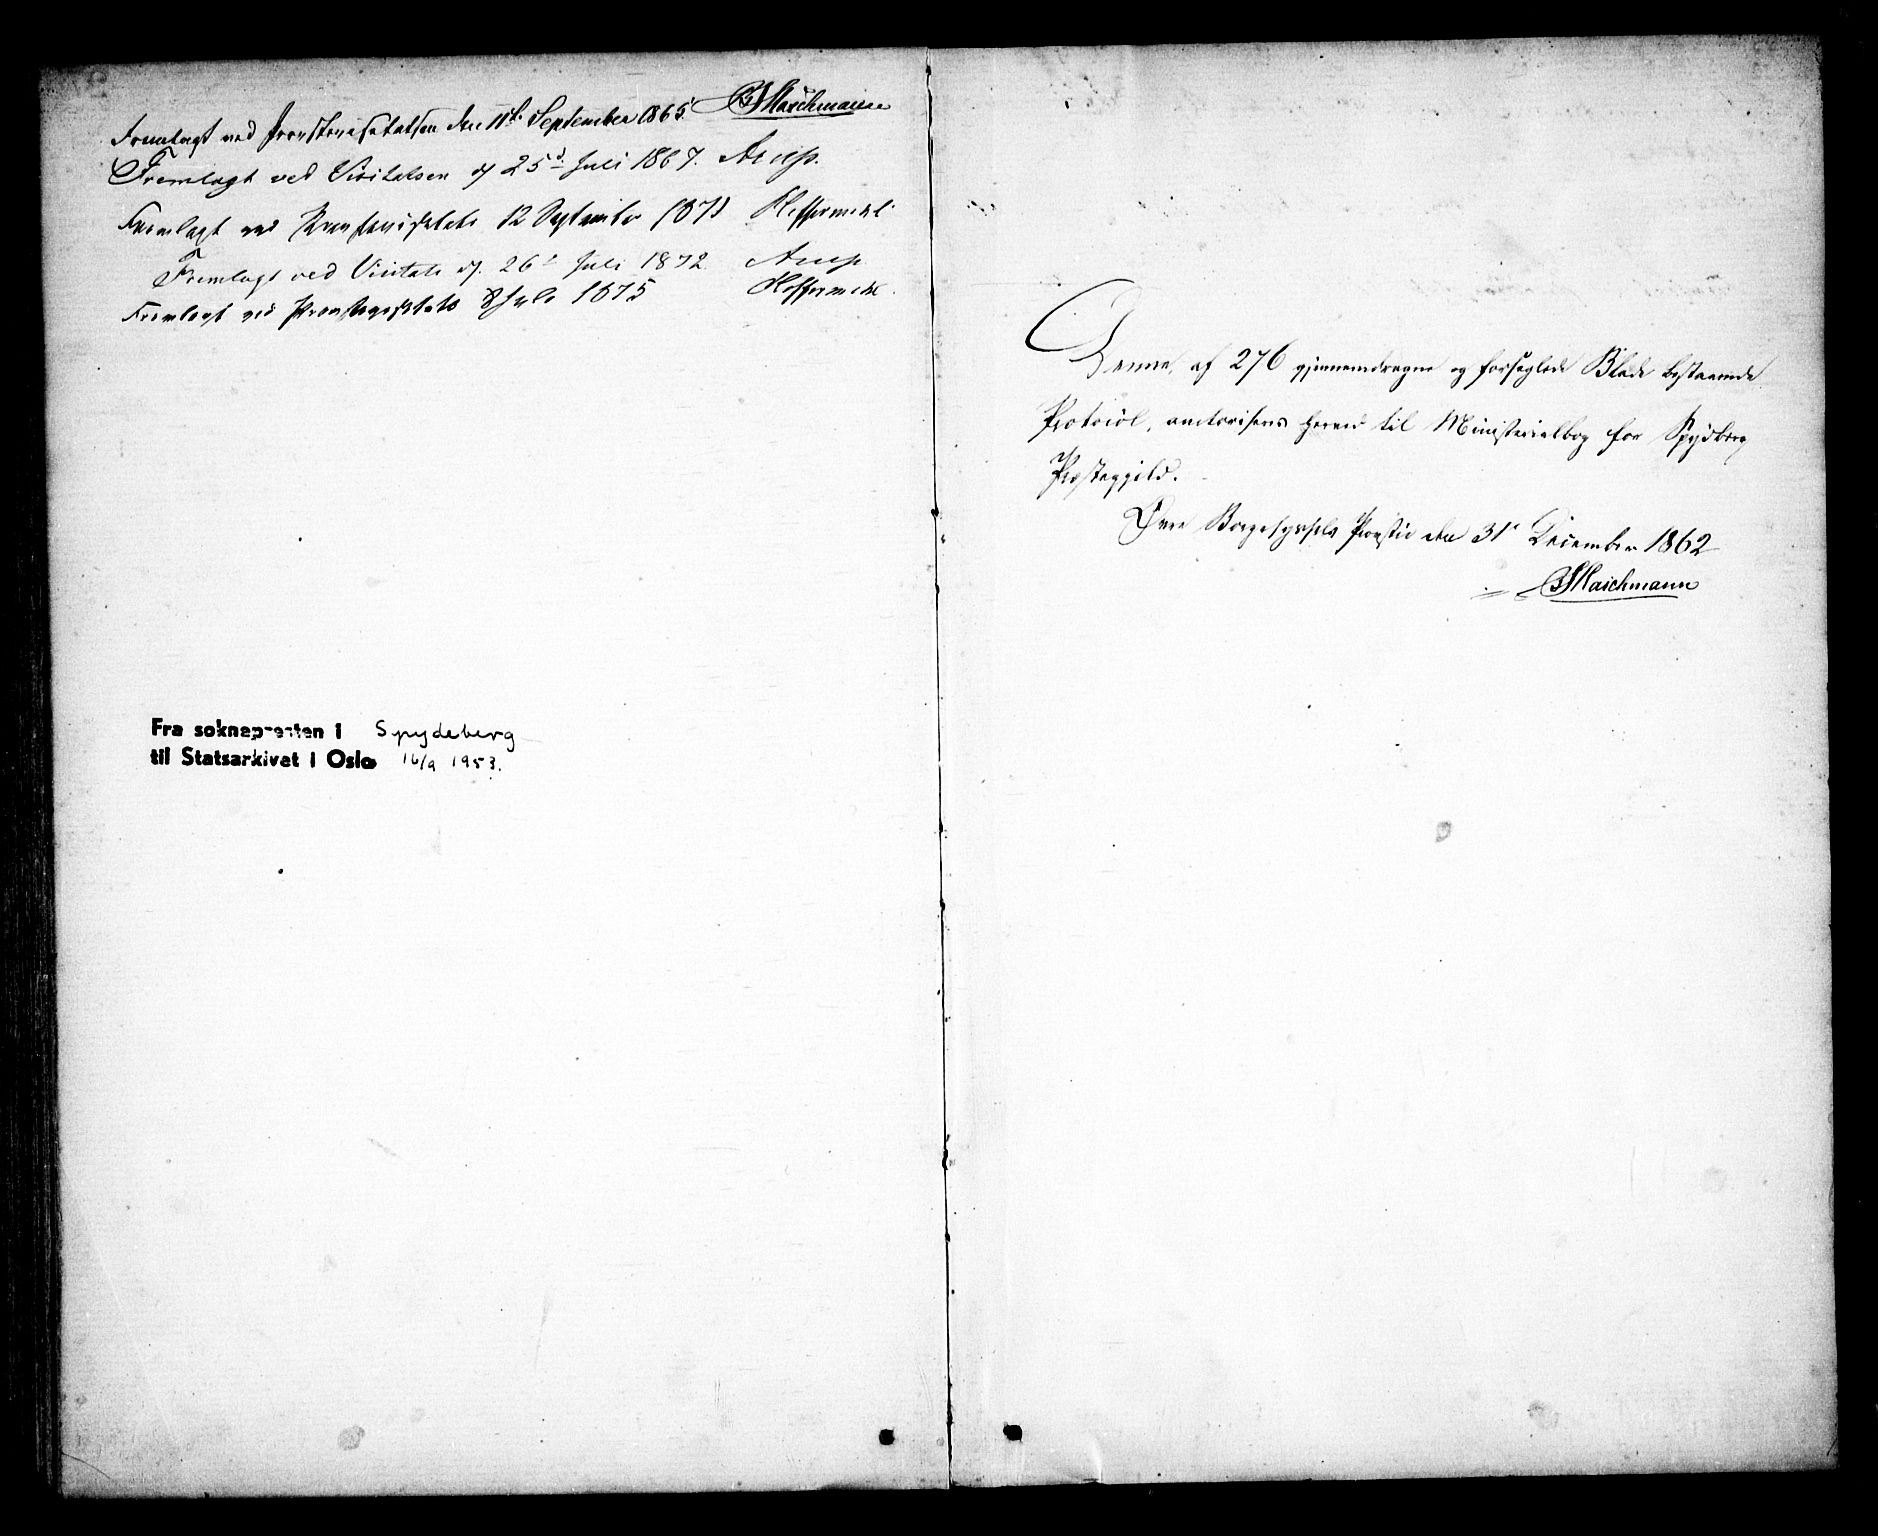 Fremlagt ved Provstevisitatsen den 11te September 1865. Maschmann
Fremlagt ved Visitatsen d 25d Juli 1867. Arup.
Fremlagt ved Provstevisitats 12 September 1871 Heffermehl
Fremlagt ved Visitats d. 26d Juli 1872. Arup.
Fremlagt ved Provstevisitats 8 Juli 1875 Heffermehl.
Fra soknepresten i Spydeberg
til Statsarkivet i Oslo 16/9 1953.
Denne, af 276 gjennemdragne og forseglede Blade bestaaende
Protocol, autoriseres herved til Ministerialbog for Spydberg
Præstegjeld.
Øvre Borgesyssels Provsti den 31te December 1862
Maschmann